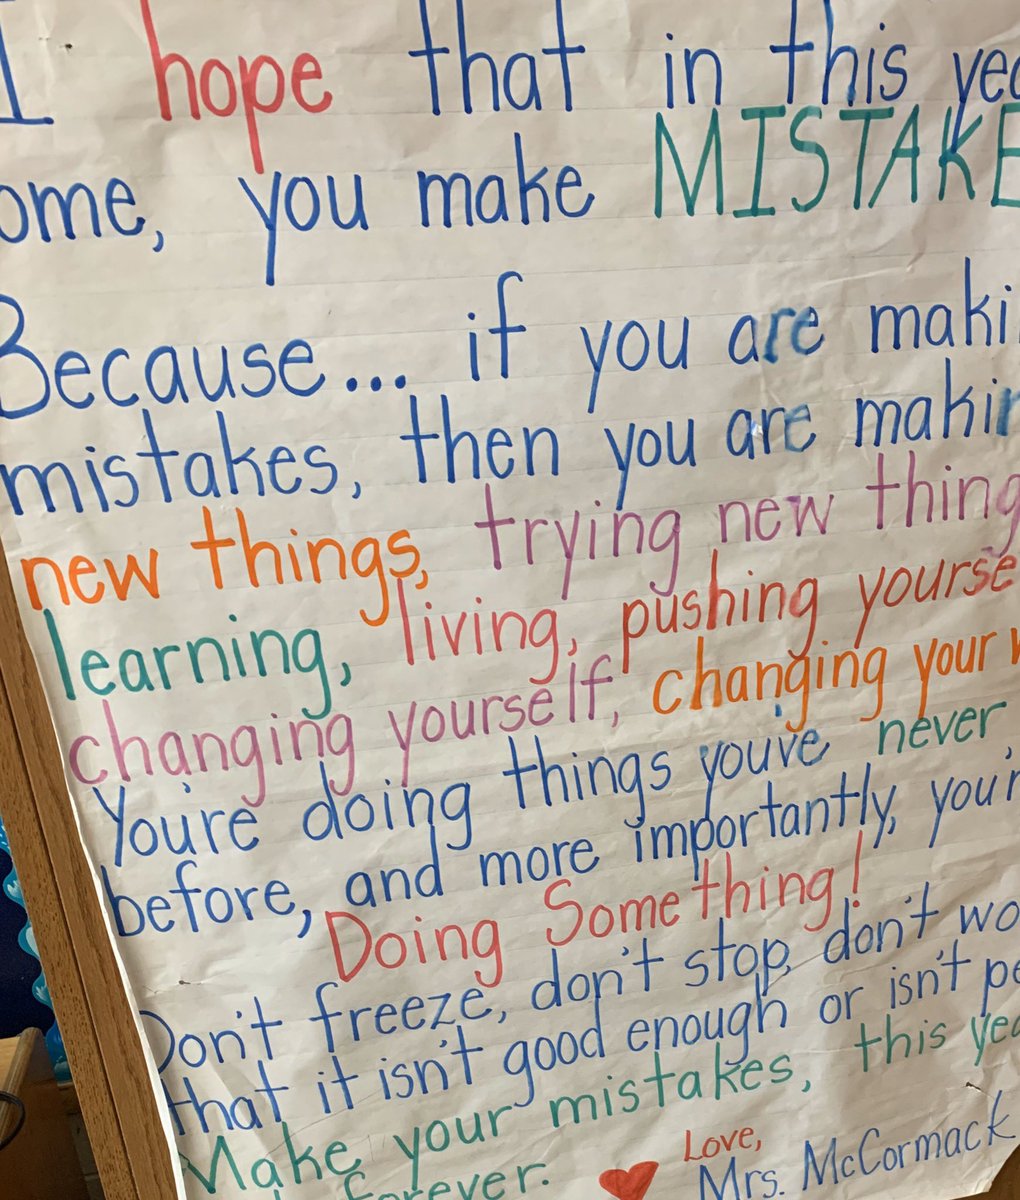 I hope that in this yea
ome, you make MISTAKE
Because... if you are maki
mistakes, then you are makin
new things, trying new thing
learning, living, pushing yourse
changing yourself, changing your w
You're doing things you've never
before, and more importantly, you'r
Doing Something!
Don't freeze, don't stop, don't wo
that it isn't good enough or isn't pe
Make your mistakes, this yea
forever.
Love,
Mrs. McCormack